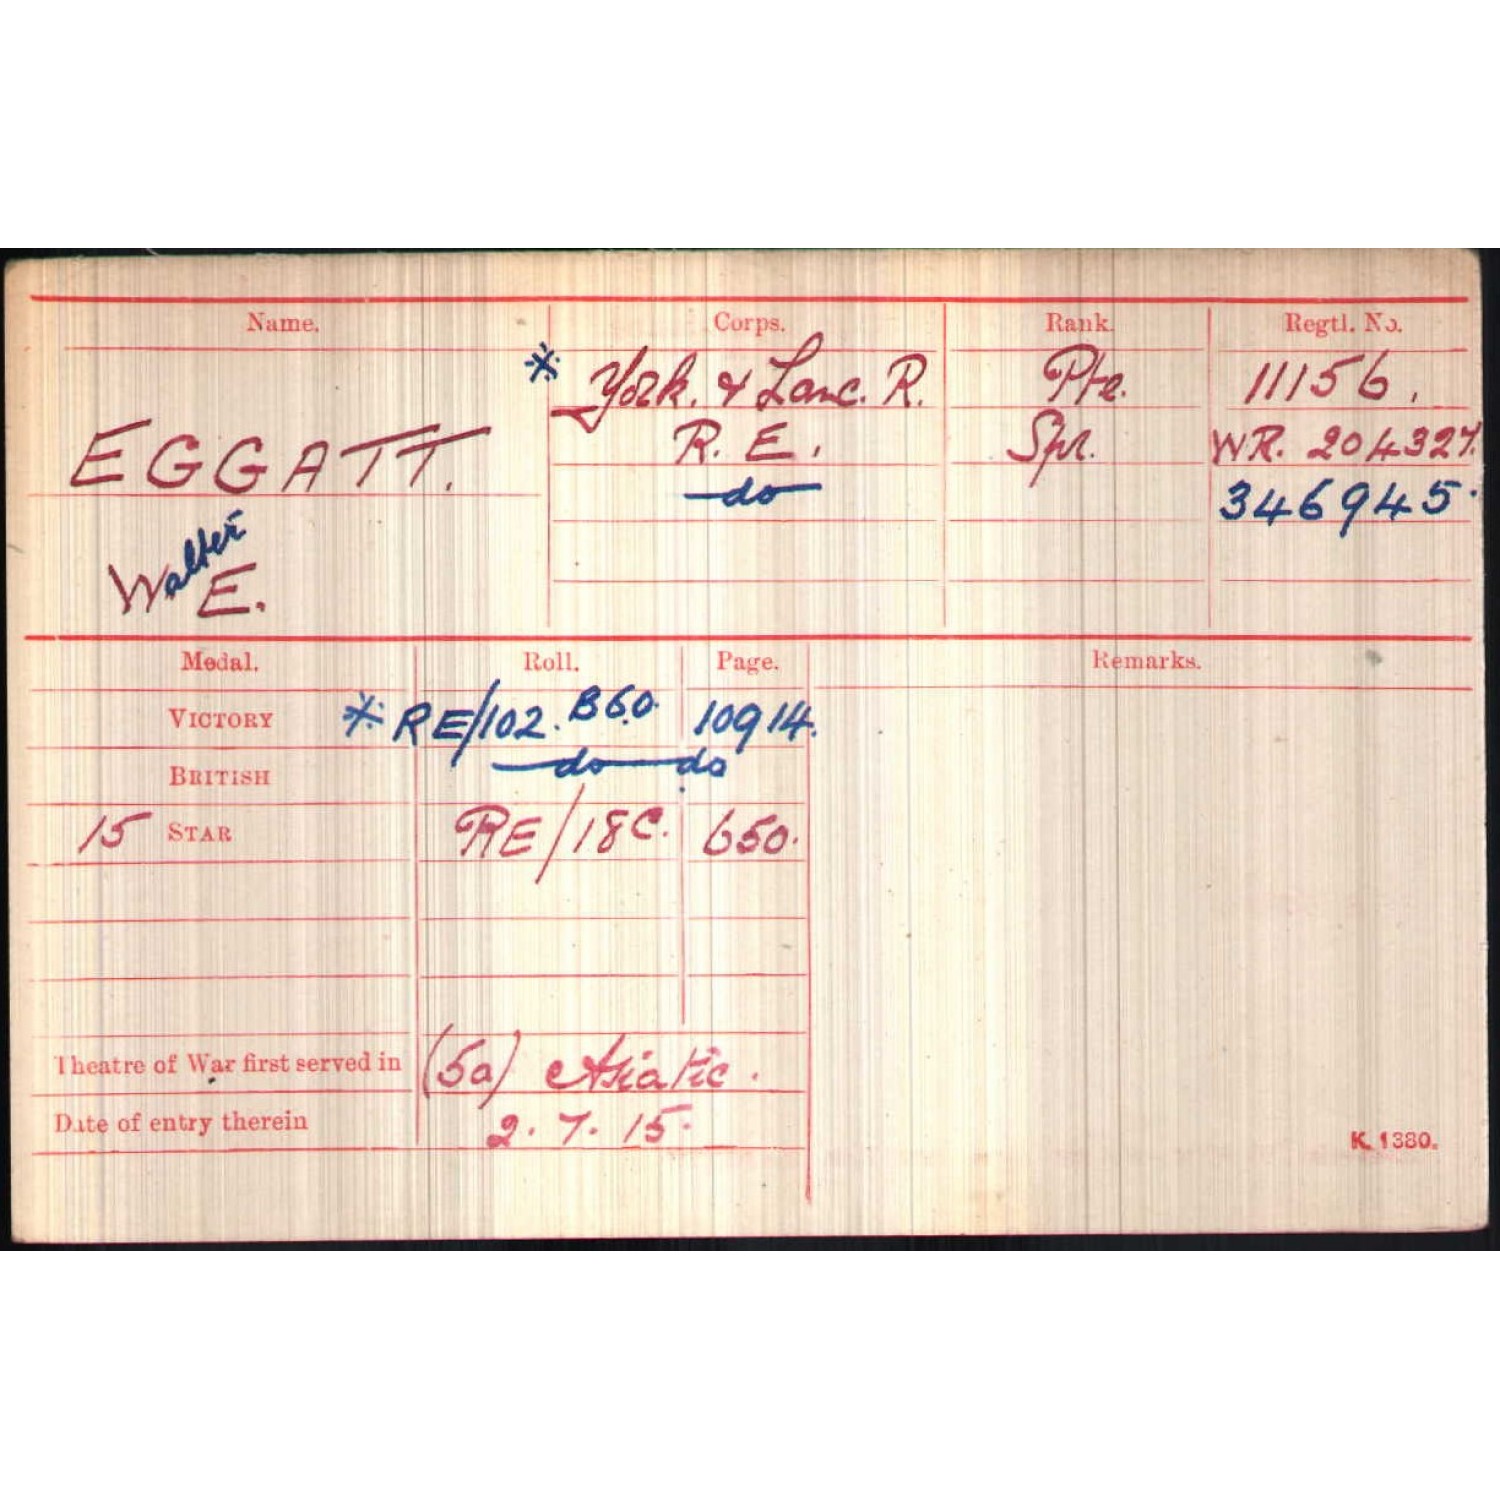 Name. Corps. Rank. Regtl. No.
※ York. & Lanc. R. Pte. 11156.
EGGATT. R. E. Spr. WR. 204327.
do 346945.
Walter E.
Medal. Roll. Page. Remarks.
VICTORY ※ RE/102. B60. 10914.
BRITISH do do
15 STAR RE/18C. 650.
Theatre of War first served in (5a) Asiatic.
Date of entry therein 2. 7. 15.
K. 1380.